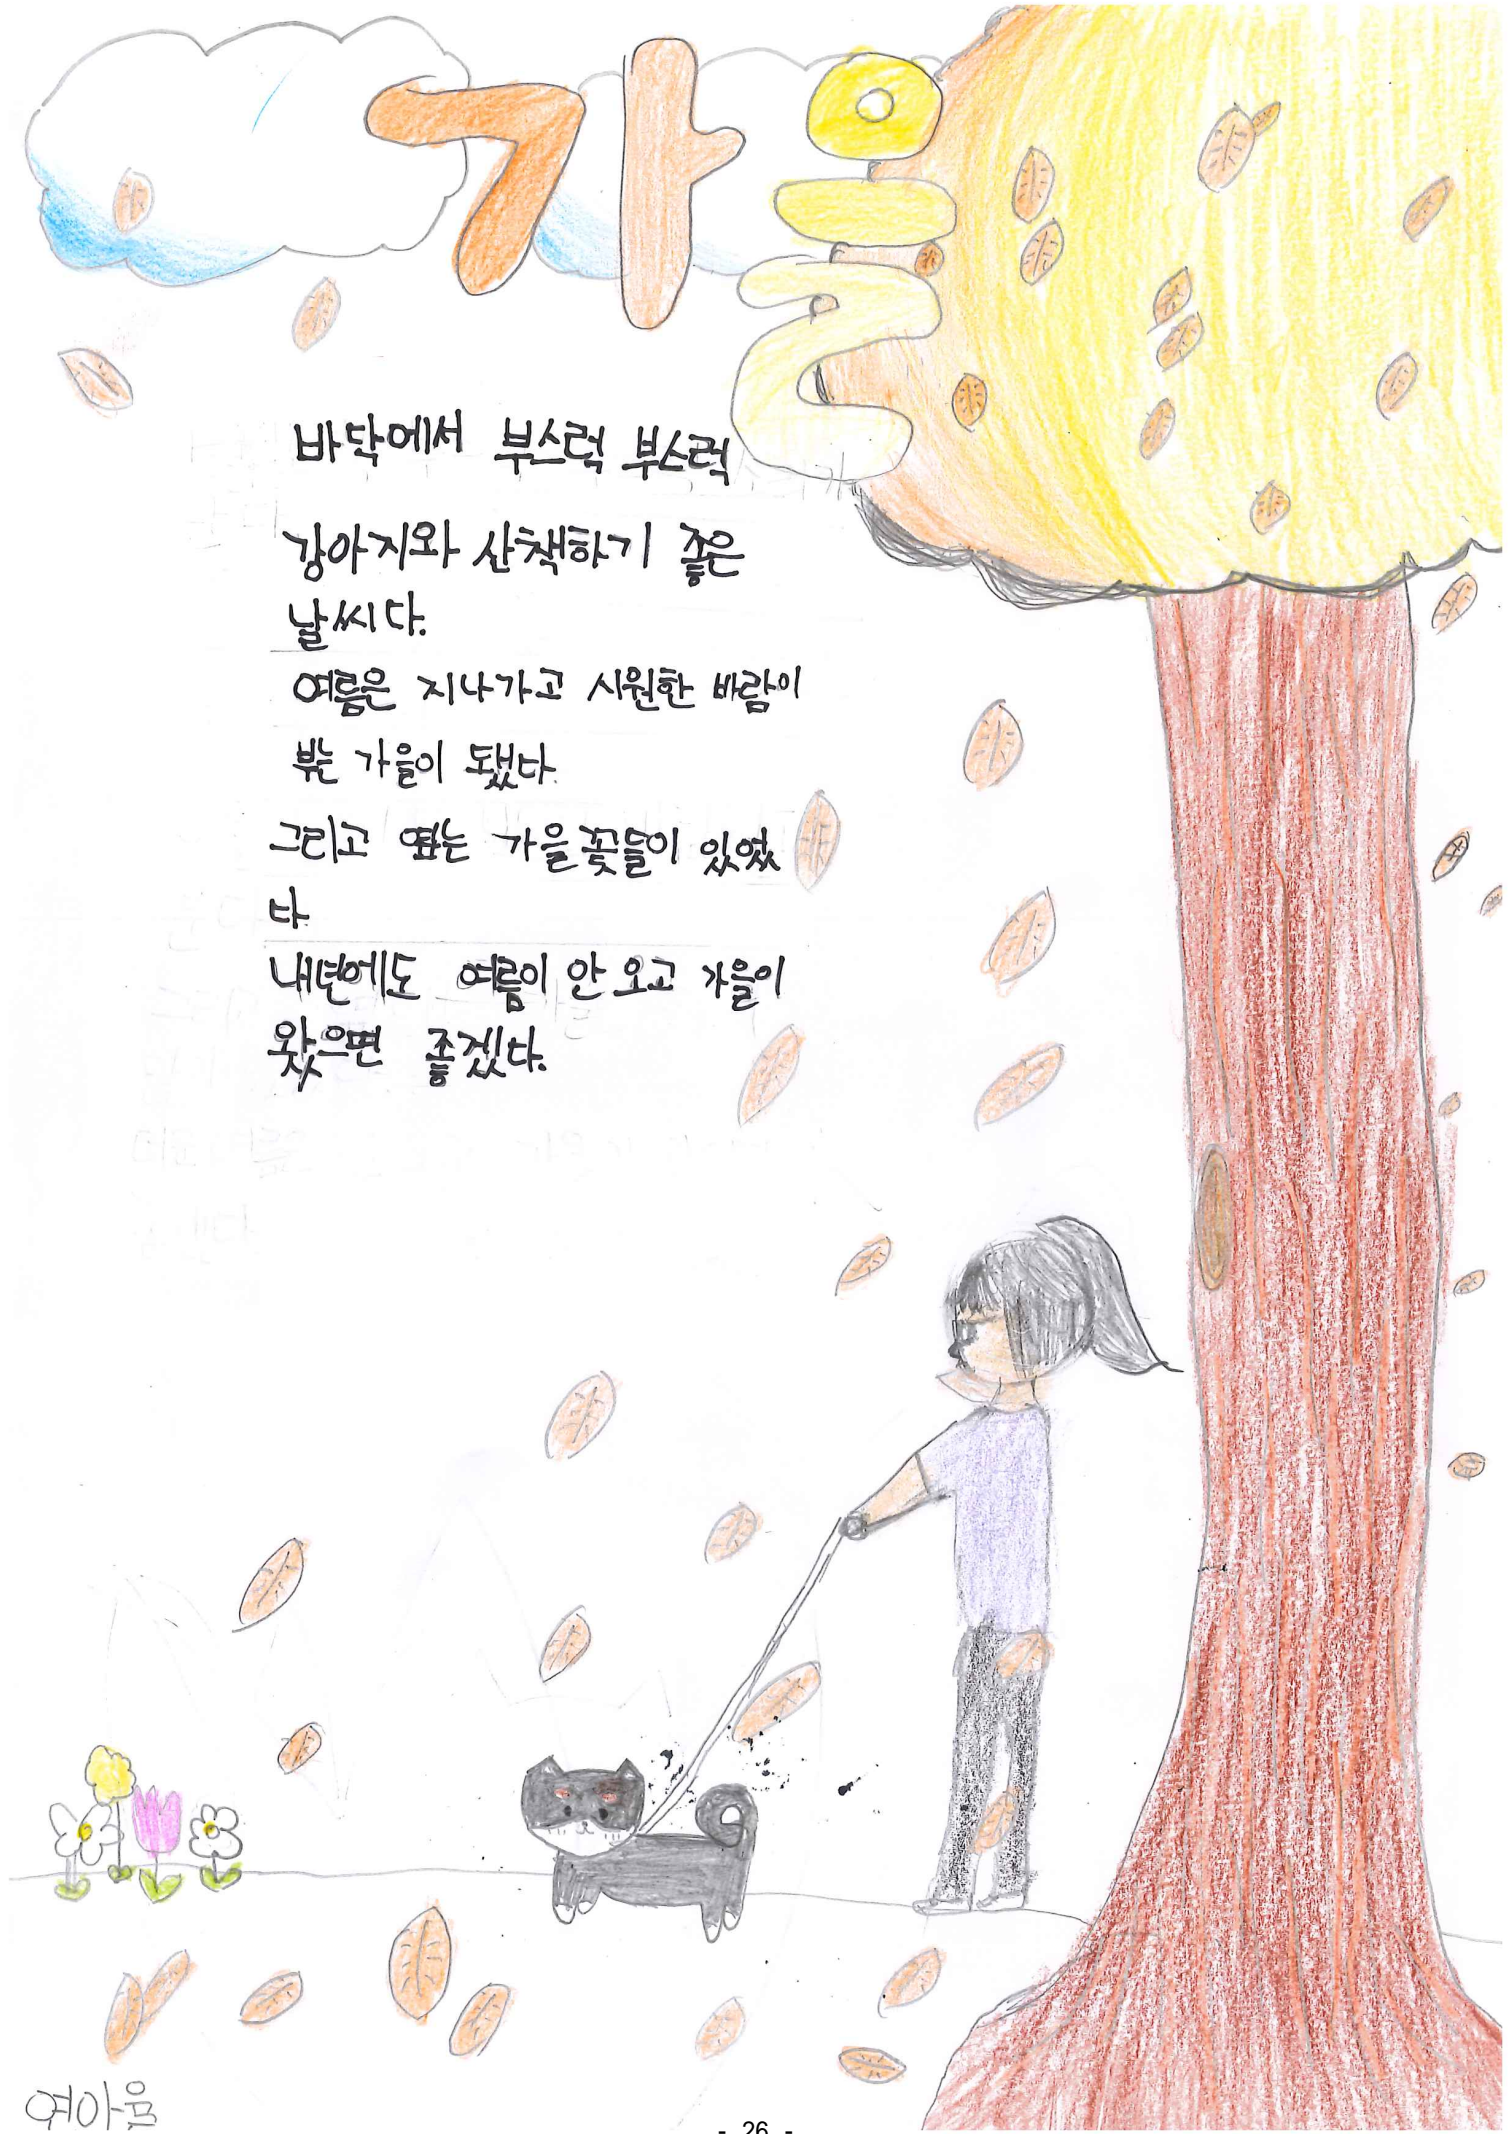 가을
바닥에서 부스럭 부스럭
강아지와 산책하기 좋은
날씨다.
여름은 지나가고 시원한 바람이
부는 가을이 됐다.
그리고 옆는 가을꽃들이 있었
다
내년에도 여름이 안 오고 가을이
왔으면 좋겠다.
여아음
- 26 -